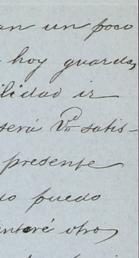 an un poco
hoy guarda
ilidad ir
será V. satis-
presente
do puedo
anteré otro